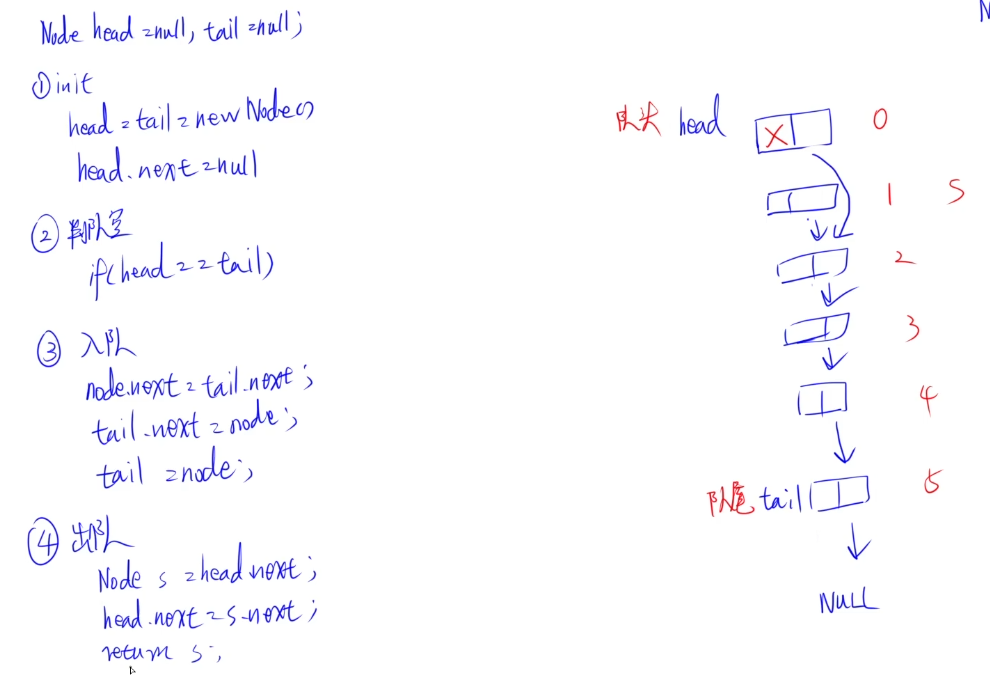 Node head = null, tail = null;
① init
head = tail = new Node()
head.next = null
② 判队空
if(head == tail)
③ 入队
node.next = tail.next;
tail.next = node;
tail = node;
④ 出队
Node s = head.next;
head.next = s.next;
return s;
N
队头 head X 0
1 S
2
3
4
队尾 tail 5
NULL